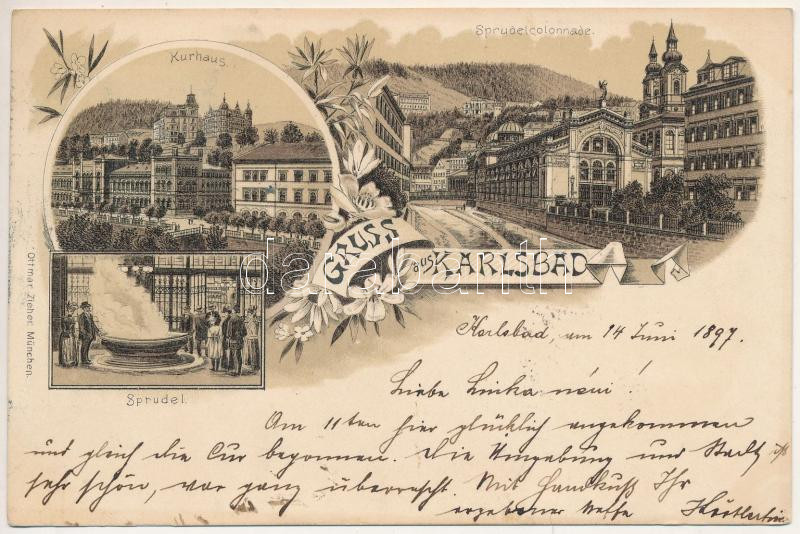 Sprudelcolonnade.
Kurhaus.
GRUSS
aus KARLSBAD
Ottmar Zieher, München.
Sprudel.
darabanth
Karlsbad, am 14 Juni 1897.
Liebe Linka néni!
Am 11ten hier glücklich angekommen
und gleich die Cur begonnen. Die Umgebung und Stadt ist
sehr schön, war ganz überrascht. Mit Handkuß Ihr
ergebener Neffe